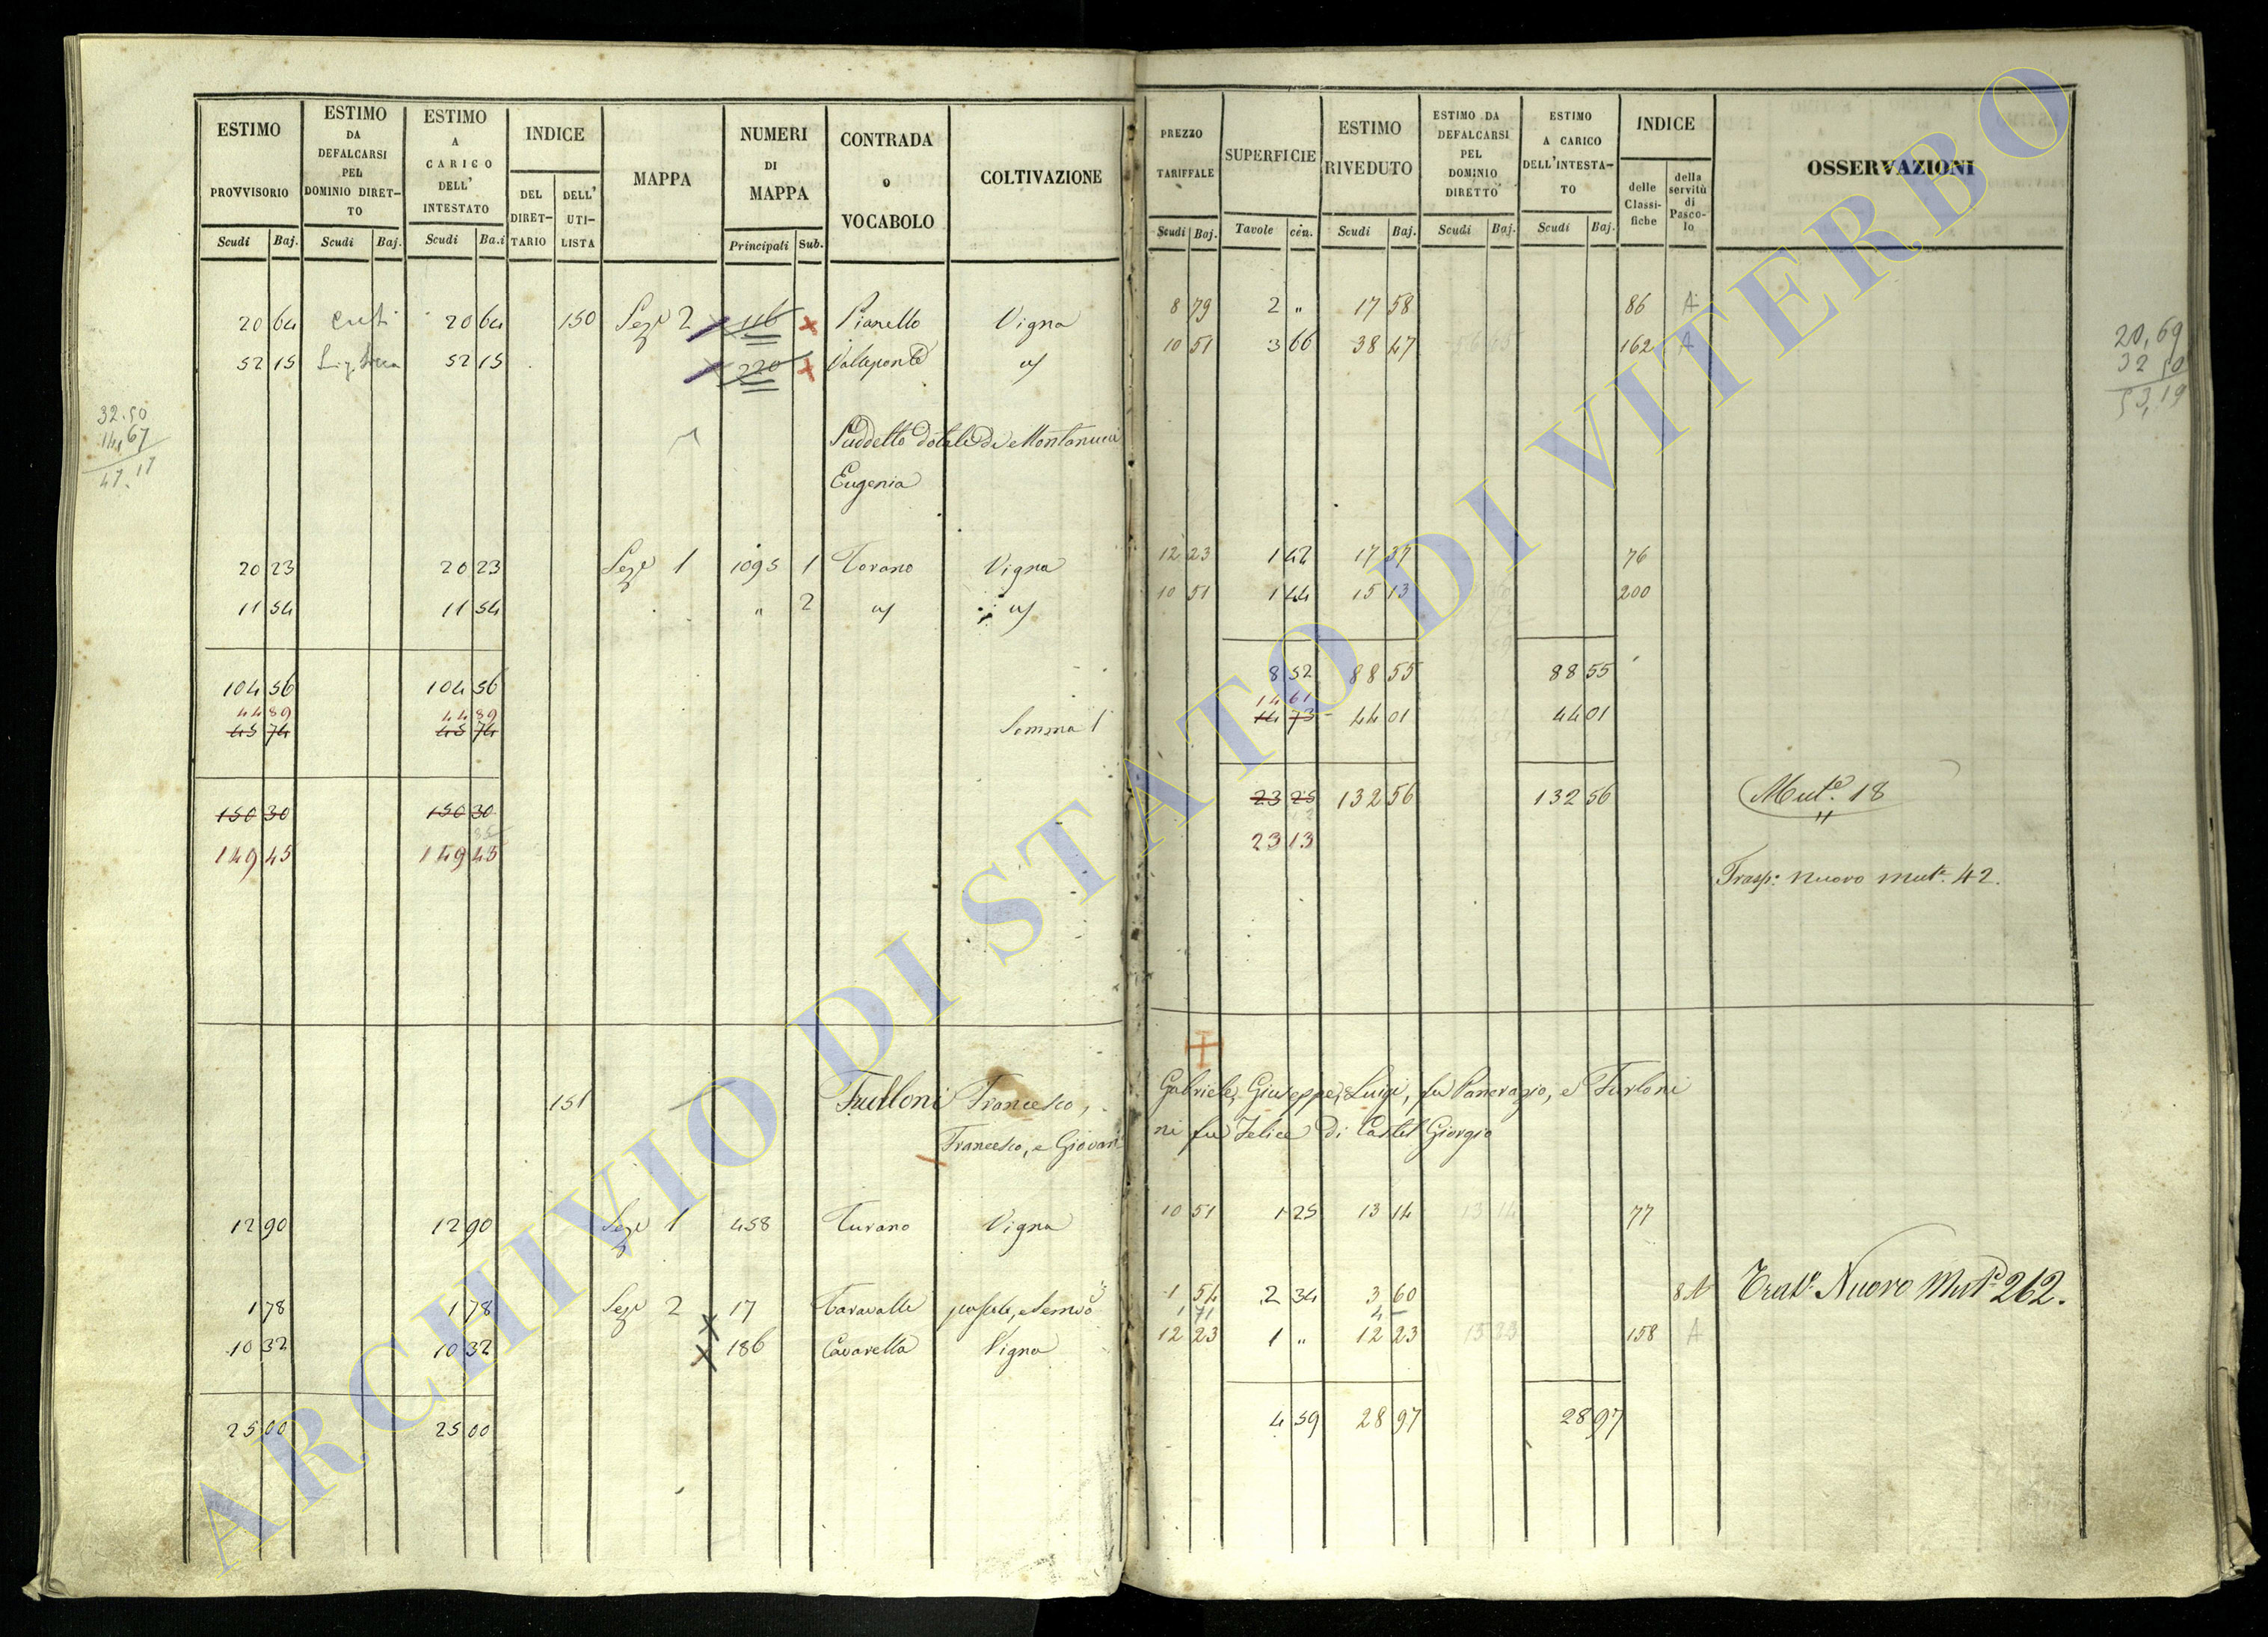 ESTIMO PROVVISORIO Scudi Baj.
ESTIMO DA DEFALCARSI PEL DOMINIO DIRETTO Scudi Baj.
ESTIMO A CARICO DELL' INTESTATO Scudi Ba.i
INDICE DEL DIRETTARIO DELL' UTILISTA
MAPPA
NUMERI DI MAPPA Principali Sub.
CONTRADA o VOCABOLO
COLTIVAZIONE
PREZZO TARIFFALE Scudi Baj.
SUPERFICIE Tavole cen.
ESTIMO RIVEDUTO Scudi Baj.
ESTIMO DA DEFALCARSI PEL DOMINIO DIRETTO Scudi Baj.
ESTIMO A CARICO DELL'INTESTATO Scudi Baj.
INDICE delle Classifiche della servitù di Pascolo
OSSERVAZIONI
20 64 20 64 150 Sez.e 2 116 Pianello Vigna 8 79 2 " 17 58 86 A
52 15 52 15 220 Valleponte 10 51 3 66 38 47 162 A
20,69
32 50
53,19
32.50
14,67
47.17
Suddetto dotale di Montanucci
Eugenia
20 23 20 23 Sez.e 1 1095 1 Torano Vigna 12 23 1 42 17 37 76
11 54 11 54 " 2 10 51 1 44 15 13 200
104 56 104 56 8 52 88 55 88 55
44 89 44 89 14 61
45 74 45 74 Somma 1 14 73 44 01 44 01
150 30 150 30 23 25 132 56 132 56 Mut.e 18
149 45 149 45 23 13
Trasp: nuovo mut.e 42.
151 Furloni Francesco, Gabriele, Giuseppe, Luigi, fu Pancrazio, e Furloni
Francesco, e Giovanni fu Felice di Castel Giorgio
12 90 12 90 Sez.e 1 458 Turano Vigna 10 51 1 25 13 14 13 14 77
1 78 1 78 Sez.e 2 17 Caravalle 1 54 2 34 3 60 8 A Nuovo Mut.e 262.
1 71 4 –
10 32 10 32 186 Cavarella Vigna 12 23 1 " 12 23 158 A
25 00 25 00 4 59 28 97 28 97
ARCHIVIO DI STATO DI VITERBO